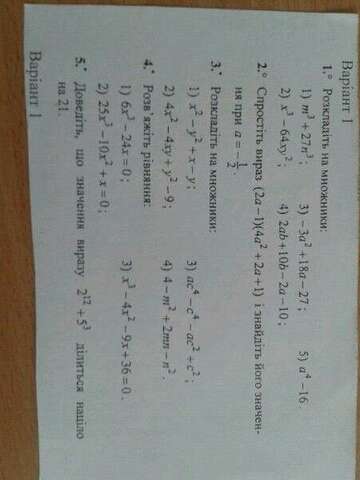 Варіант 1
1.° Розкладіть на множники:
1) m³ + 27n³; 3) −3a² + 18a − 27; 5) a⁴ − 16
2) x³ − 64xy²; 4) 2ab + 10b − 2a − 10;
2.° Спростіть вираз (2a − 1)(4a² + 2a + 1) і знайдіть його значен-
ня при a = −1/2.
3.• Розкладіть на множники:
1) x² − y² + x − y; 3) ac⁴ − c⁴ − ac² + c²;
2) 4x² − 4xy + y² − 9; 4) 4 − m² + 2mn − n².
4.• Розв'яжіть рівняння:
1) 6x³ − 24x = 0; 3) x³ − 4x² − 9x + 36 = 0.
2) 25x³ − 10x² + x = 0;
5.• Доведіть, що значення виразу 2¹² + 5³ ділиться націло
на 21.
Варіант 1